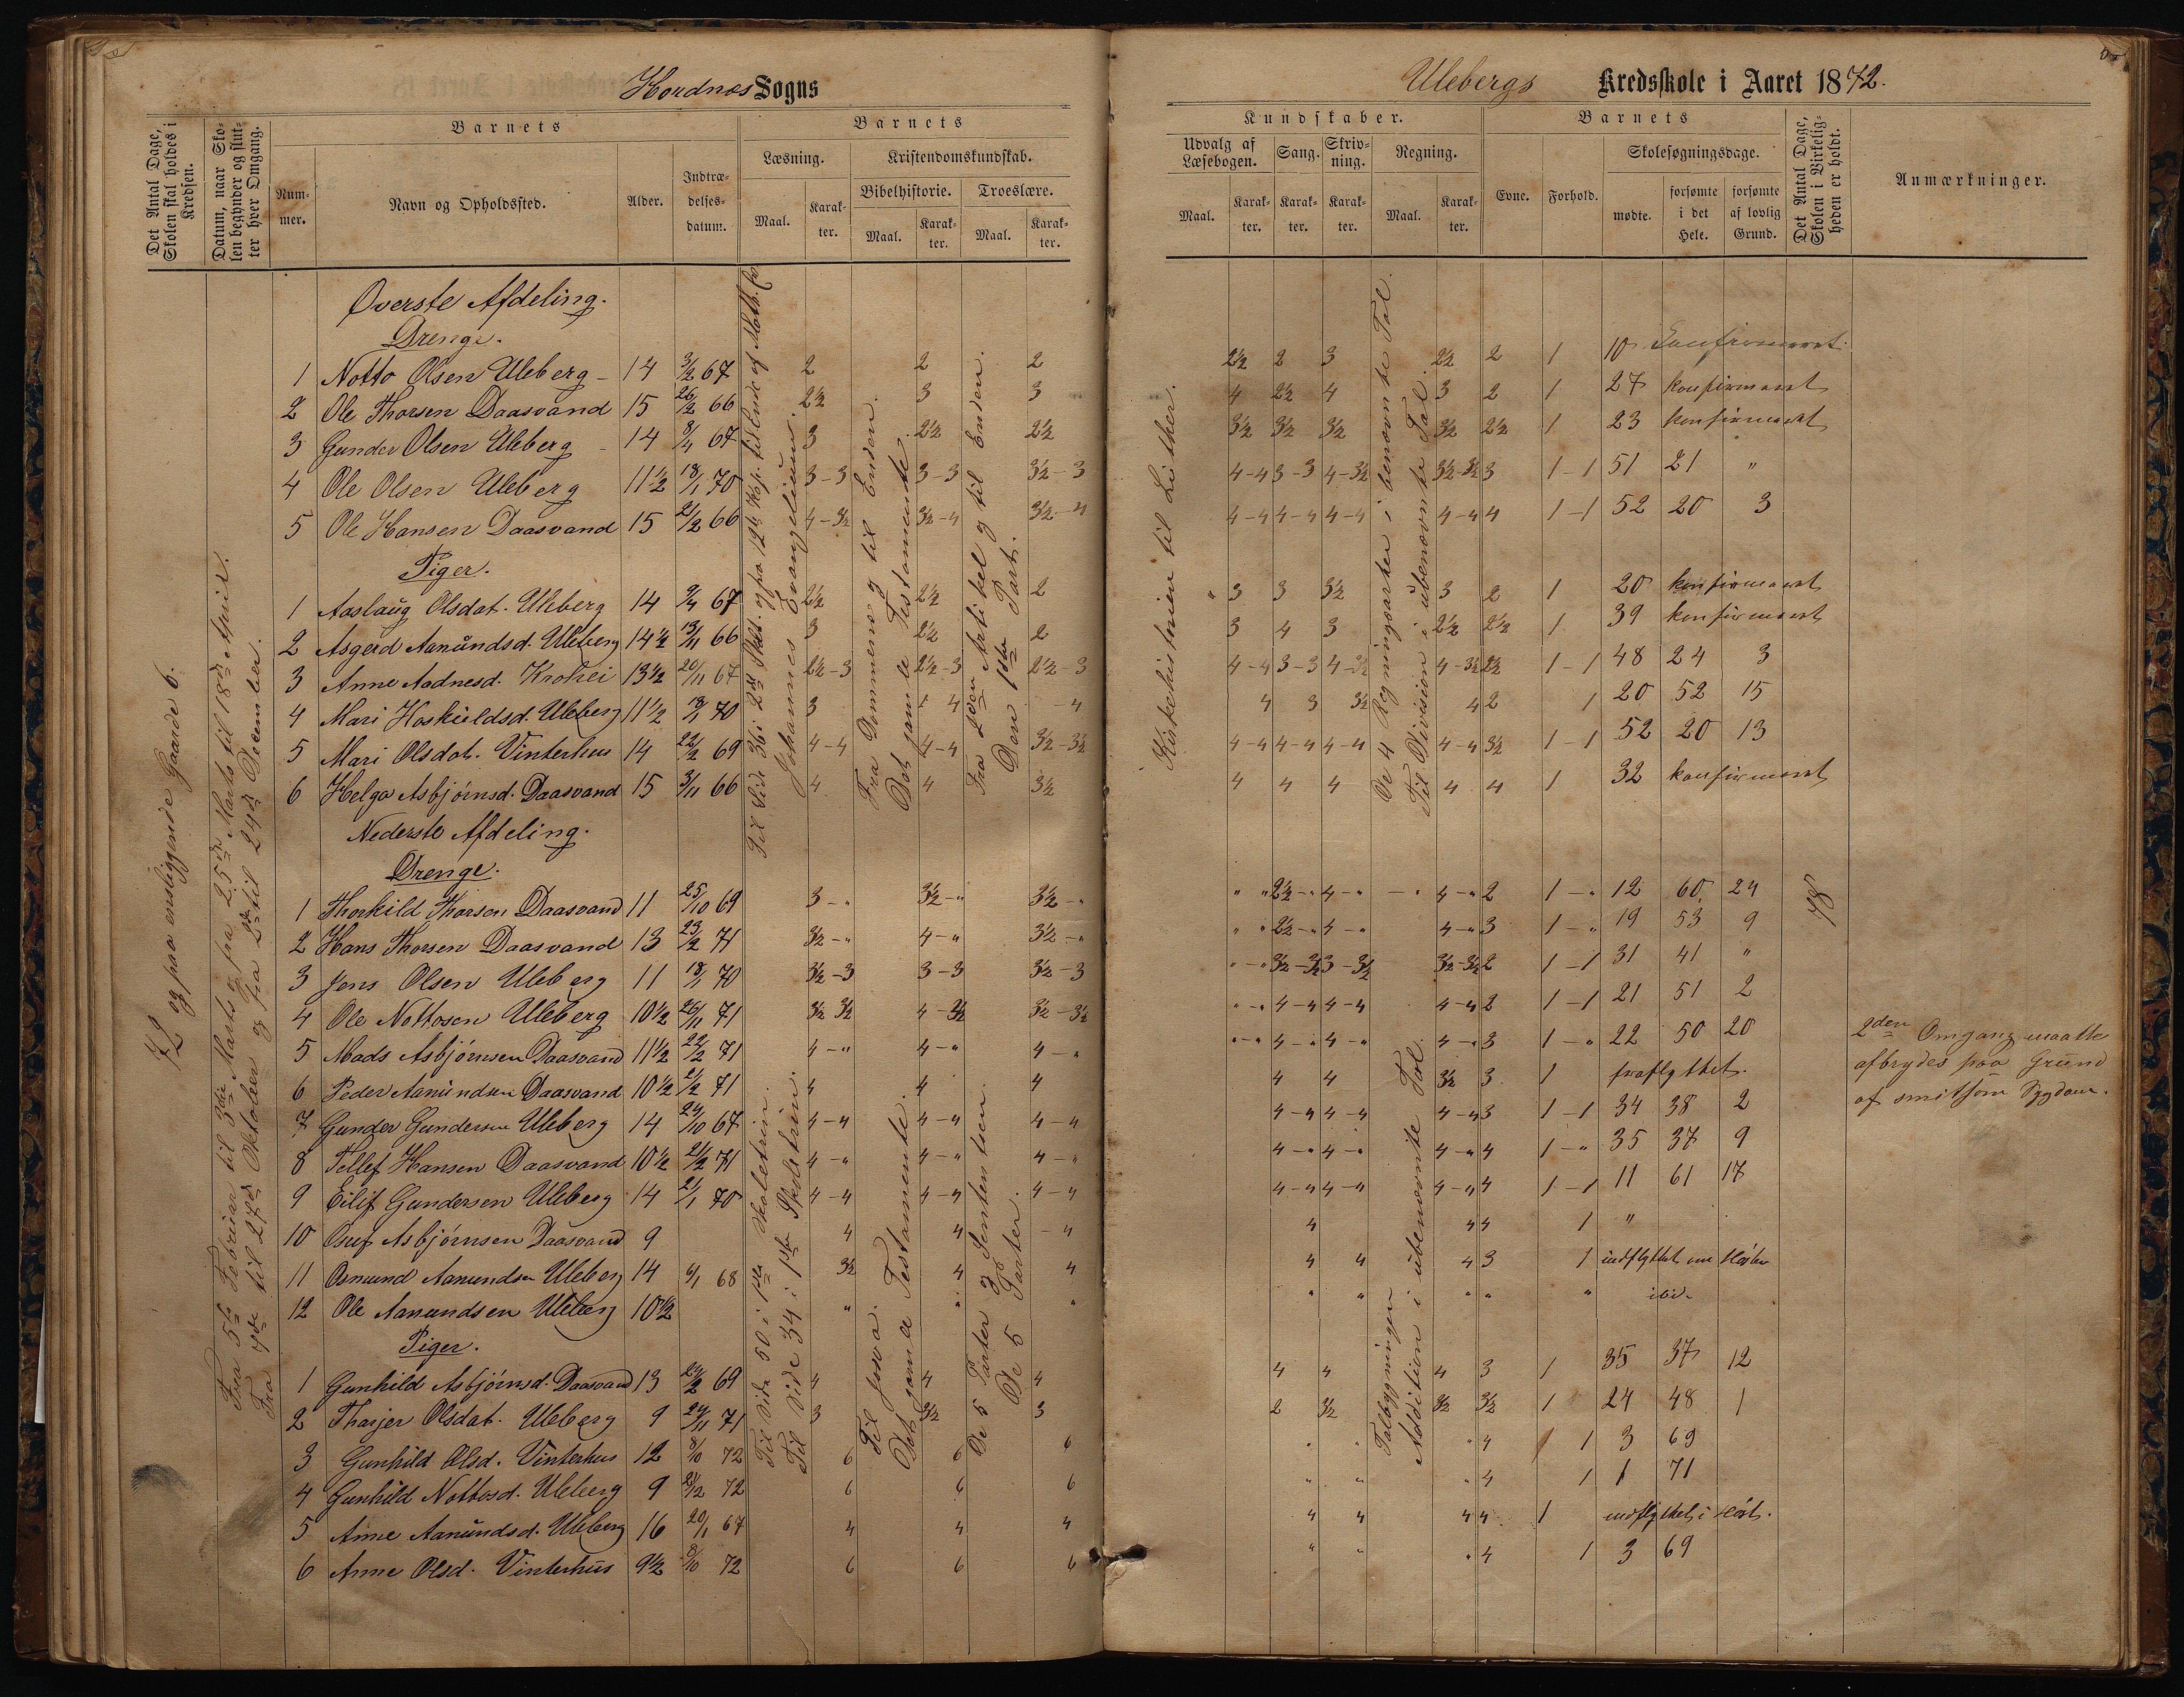 Hordnes Sogns
Det Antal Dage, Skolen skal holdes i Kredsen.
Datum, naar Skolen begynder og slutter hver Omgang.
Barnets
Barnets
Nummer.
Navn og Opholdssted.
Alder.
Indtrædelsesdatum.
Læsning.
Kristendomskundskab.
Bibelhistorie.
Troeslære.
Maal.
Karakter.
Maal.
Karakter.
Maal.
Karakter.
72 og paa ensliggende Gaarde 6.
Fra 5te Februar til 3die Marts og fra 25de Marts til 18de April.
Fra 9de til 27de Oktober og fra 2den til 24de December.
Øverste Afdeling.
Drenge.
1 Notto Olsen Uleberg 14 3/2 67 2 2 2
2 Ole Thorsen Daasvand 15 26/2 66 2½ 3 3
3 Gunder Olsen Uleberg 14 8/4 67 3 2½ 2½
4 Ole Olsen Uleberg 11½ 18/1 70 3-3 3-3 3½-3
5 Ole Hansen Daasvand 15 21/2 66 4-3½ 3½-4 3½-4
Piger.
1 Aaslaug Olsdat. Uleberg 14 9/4 67 2½ 2½ 2
2 Asgerd Aanundsd. Uleberg 14½ 13/11 66 3 2½ 2
3 Anne Aadnesd. Krohei 13½ 20/11 67 2½-3 2½-3 2½-3
4 Mari Hoskieldsd. Uleberg 11½ 18/1 70 3 4 -4
5 Mari Olsdat. Vinterhus 14 22/2 69 4-4 4-4 3½-3½
6 Helga Asbjörnsd. Daasvand 15 3/11 66 4 4 3½
Til Side 36 i 2det Skt. og fra 12te Kpt. til Ende af Math. fra
Johannes Evangelium.
Fra Dommerne og til Enden.
Det gamle Testamente.
Fra 2den Artikel og til Enden.
Den 1ste Part.
Nederste Afdeling.
Drenge.
1 Thorkild Thorsen Daasvand 11 25/10 69 3-" 3½-" 3½-"
2 Hans Thorsen Daasvand 13 23/2 71 3½-" 4-" 3½-"
3 Jens Olsen Uleberg 11 18/1 70 3½-3 3-3 3½-3
4 Ole Nottosen Uleberg 10½ 26/11 71 3½ 3½ 4-3½ 3½-3½
5 Mads Asbjörnsen Daasvand 11½ 22/2 71 4-" 4-" 4-"
6 Peder Aanundsen Daasvand 10½ 21/2 71 4 4 4
7 Gunder Gundersen Uleberg 14 24/10 67 4-4 4-4 4-4
8 Tellef Hansen Daasvand 10½ 21/2 71 4-" 4-" 4-"
9 Eilif Gundersen Uleberg 14 21/1 70 4-4 4-4 4-4
10 Asbjörnsen Daasvand 9 4 4 -4
11 Osmund Aanundsen Uleberg 14 6/1 68 3½ 4 4
12 Ole Aanundsen Uleberg 10½ " " "
Piger.
1 Gunhild Asbjörnsd. Daasvand 13 24/2 69 4 4 4
2 Tharjer Olsdat. Uleberg 9 24/11 71 3 3½ 3
3 Gunhild Olsd. Vinterhus 12 8/10 72 6 6 6
4 Gunhild Nottosd. Uleberg 9 21/12 72 6 6 6
5 Anne Aanundsd. Uleberg 16 20/1 67 4 4 4
6 Anne Olsd. Vinterhus 9½ 8/10 72 6 6 6
Til Side 50 i 1ste Skoletrin.
Til Side 34 i 1ste Skoletrin.
Til Josva.
Det gamle Testamente.
De 5 Parter og Sententsen.
De 5 Parter.
Ulebergs Kredsskole i Aaret 1872.
Kundskaber.
Barnets
Udvalg af Læsebogen.
Sang.
Skrivning.
Regning.
Evne.
Forhold.
Skolesøgningsdage.
Det Antal Dage, Skolen i Virkeligheden er holdt.
Anmærkninger.
Maal.
Karakter.
Karakter.
Karakter.
Maal.
Karakter.
mødte.
forsømte i det Hele.
forsømte af lovlig Grund.
Kirkehistorien til Luther.
De 4 Regningsarter i benævnte Tal.
Til Division i ubenævnte Tal.
2½ 2 3 2½ 2 1 10 Konfirmeret.
4 2½ 4 3 2 1 27 konfirmeret
3½ 3½ 3½ 3½ 2½ 1 23 konfirmeret
4-4 3-3 4-3½ 3½-3½ 3 1-1 51 21 "
4-4 4-4 4-4 4-4 4 1-1 52 20 3
" 3 3 3½ 3 2 1 20 konfirmeret
3 4 3 2½ 2½ 1 39 konfirmeret
4-4 3-3 4-3½ 4-3½ 2½ 1-1 48 24 3
4 3 3½ 4 2 1 20 52 15
4-4 4-4 4-4 4-4 3½ 1-1 52 20 13
4 4 4 4 4 1 32 konfirmeret
" " 2½-" 4-" -" 4-" 2 1-" 12 60 24
" " 2½-" 4-" 4-" 3 1-" 19 53 9
"-" 3½-3½ 3-3½ 3½-3½ 2 1-1 31 41 "
"-" 4-4 4-4 4-4 2 1-1 21 51 2
"-" 4-" 4-" 4-" 3 1-" 22 50 20
4 4 3½ 3 1 fraflyttet.
4-4 4-4 4-4 3 1-1 34 38 2
4-" 4-" 4-" 4 1-" 35 37 9
4-4 4-4 4-4 4 1-1 11 61 17
4 4 4 1 "
4 4 4 3 1 indflyttet om Høsten
" " " " " ibi.
78
2den Omgang maatte
afbrydes paa Grund
af smitsom Sygdom.
4 4 4 3 1 35 37 12
2 3½ 3½ 3½ 1 24 48 1
" " " 4 1 1 3 69
" " " 4 1 1 71
4 4 4 4 1 indflyttet i Høst.
" " " 4 1 3 69
Talbygningen
Addition i ubenævnte Tal.